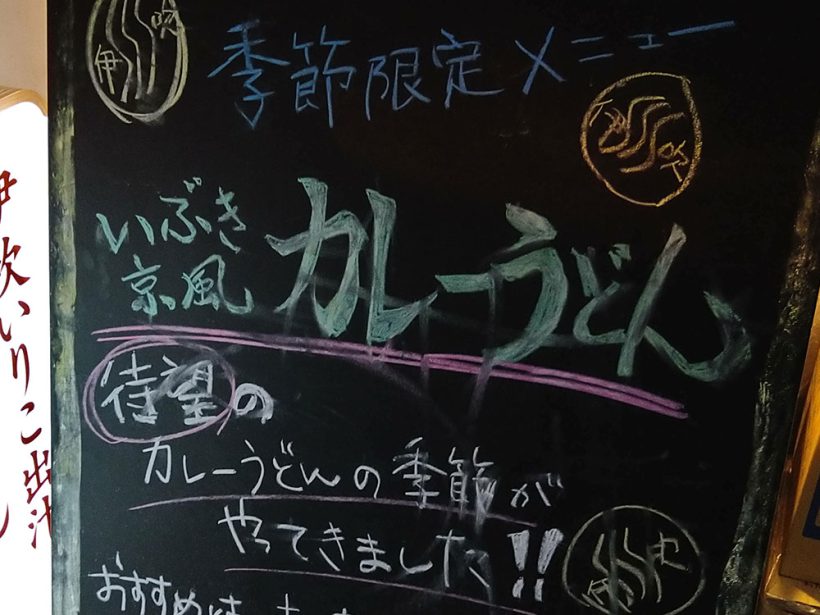 季節限定メニュー
いぶき
京風
カレーうどん
待望の
カレーうどんの季節が
やってきました!!
おすすめは
伊吹いりこ出汁